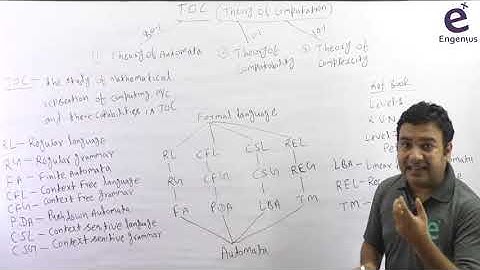 TOC (Theory of Computation)
① Theory of Automata ② Theory of Computability ③ Theory of Complexity
TOC - The study of mathematical
of computing M/C
and there capabilities in TOC
Formal language
RL - Regular language
RG - Regular grammar
FA - Finite Automata
CFL - Context Free language
CFG - Context Free grammar
PDA - Pushdown Automata
CSL - Context sentive language
CSG - Context sentive grammar
RL CFL CSL REL
RG CFG CSG REG
FA PDA LBA TM
Automata
Ref Book
Level-1
Level-
LBA - Linear
Automata
REL - Re
TM -
e+
Engenius
e+
Engenius